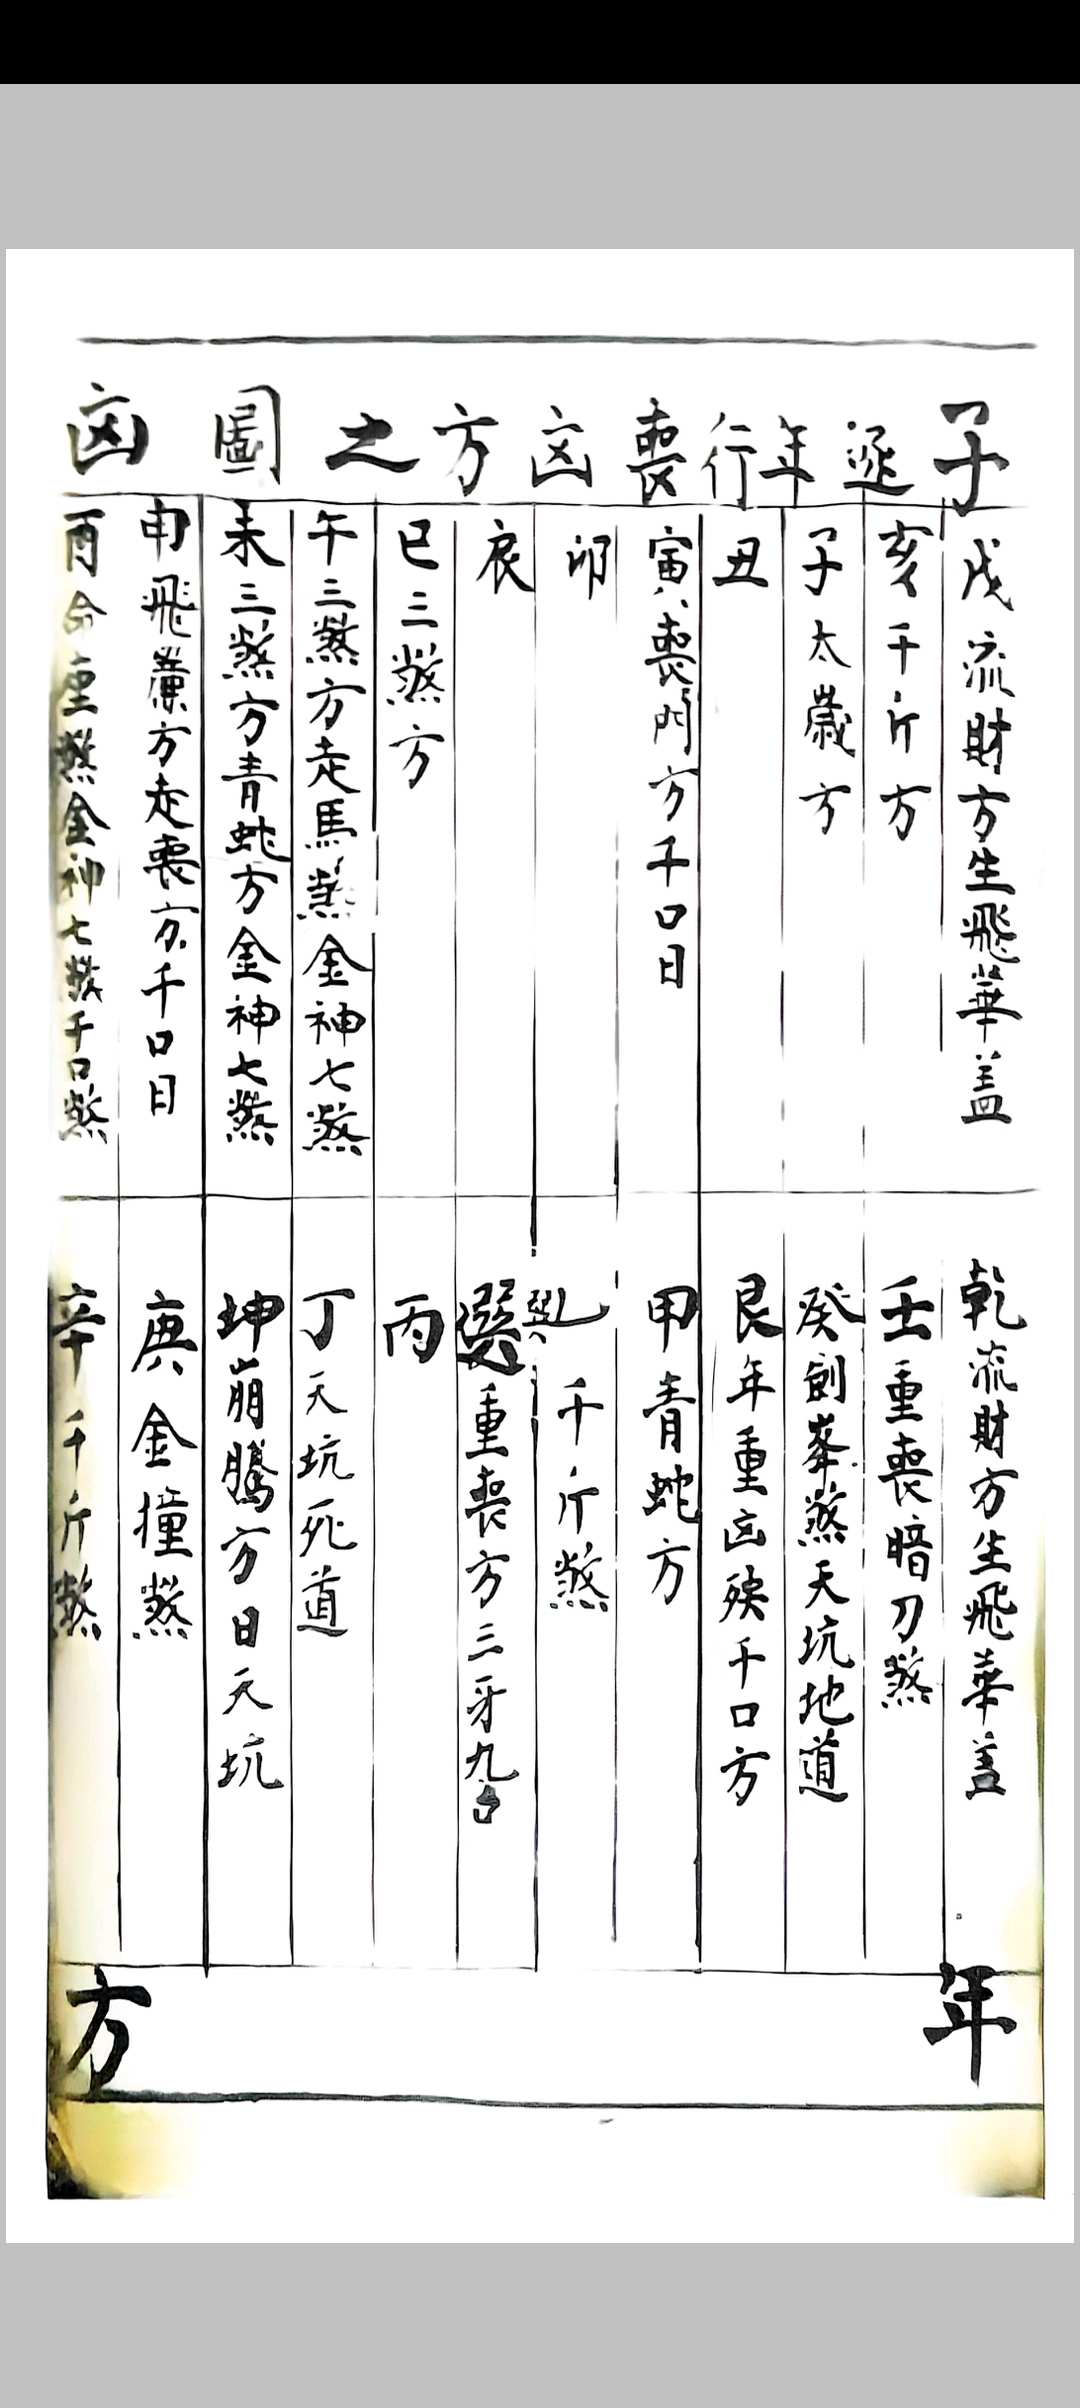 子逐年行喪凶方之圖凶
戌流財方生飛華盖
亥千斤方
子太歲方
丑
寅喪門方千口日
卯
辰
巳三煞方
午三煞方走馬煞金神七煞
未三煞方青蛇方金神七煞
申飛簾方走喪方千口日
酉命重煞金神七煞千口煞
乾流財方生飛華盖
壬重喪暗刀煞
癸劍峯煞天坑地道
艮年重凶殃千口方
甲青蛇方
乙千斤煞
巽重喪方三牙九
丙
丁天坑死道
坤崩騰方日天坑
庚金撞煞
辛千斤煞
年
方